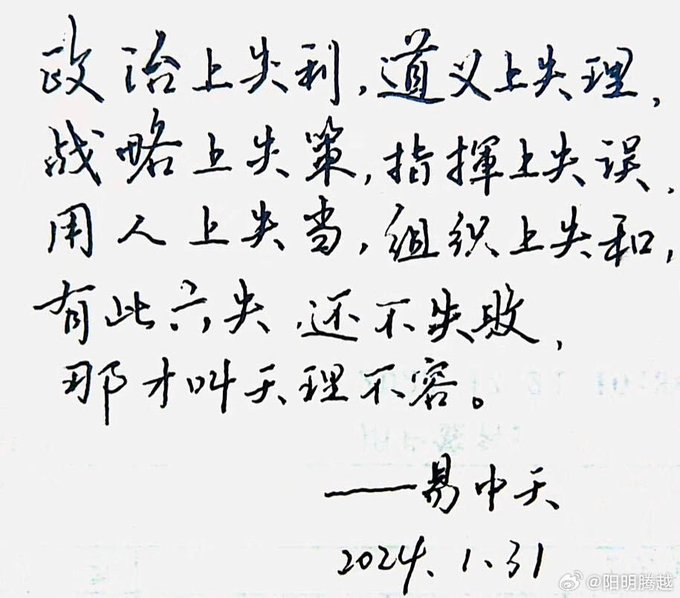 政治上失利,道义上失理,
战略上失策,指揮上失误,
用人上失当,组织上失和,
有此六失,还不失败,
那才叫天理不容。
——易中天
2024.1.31
@阳明腾越